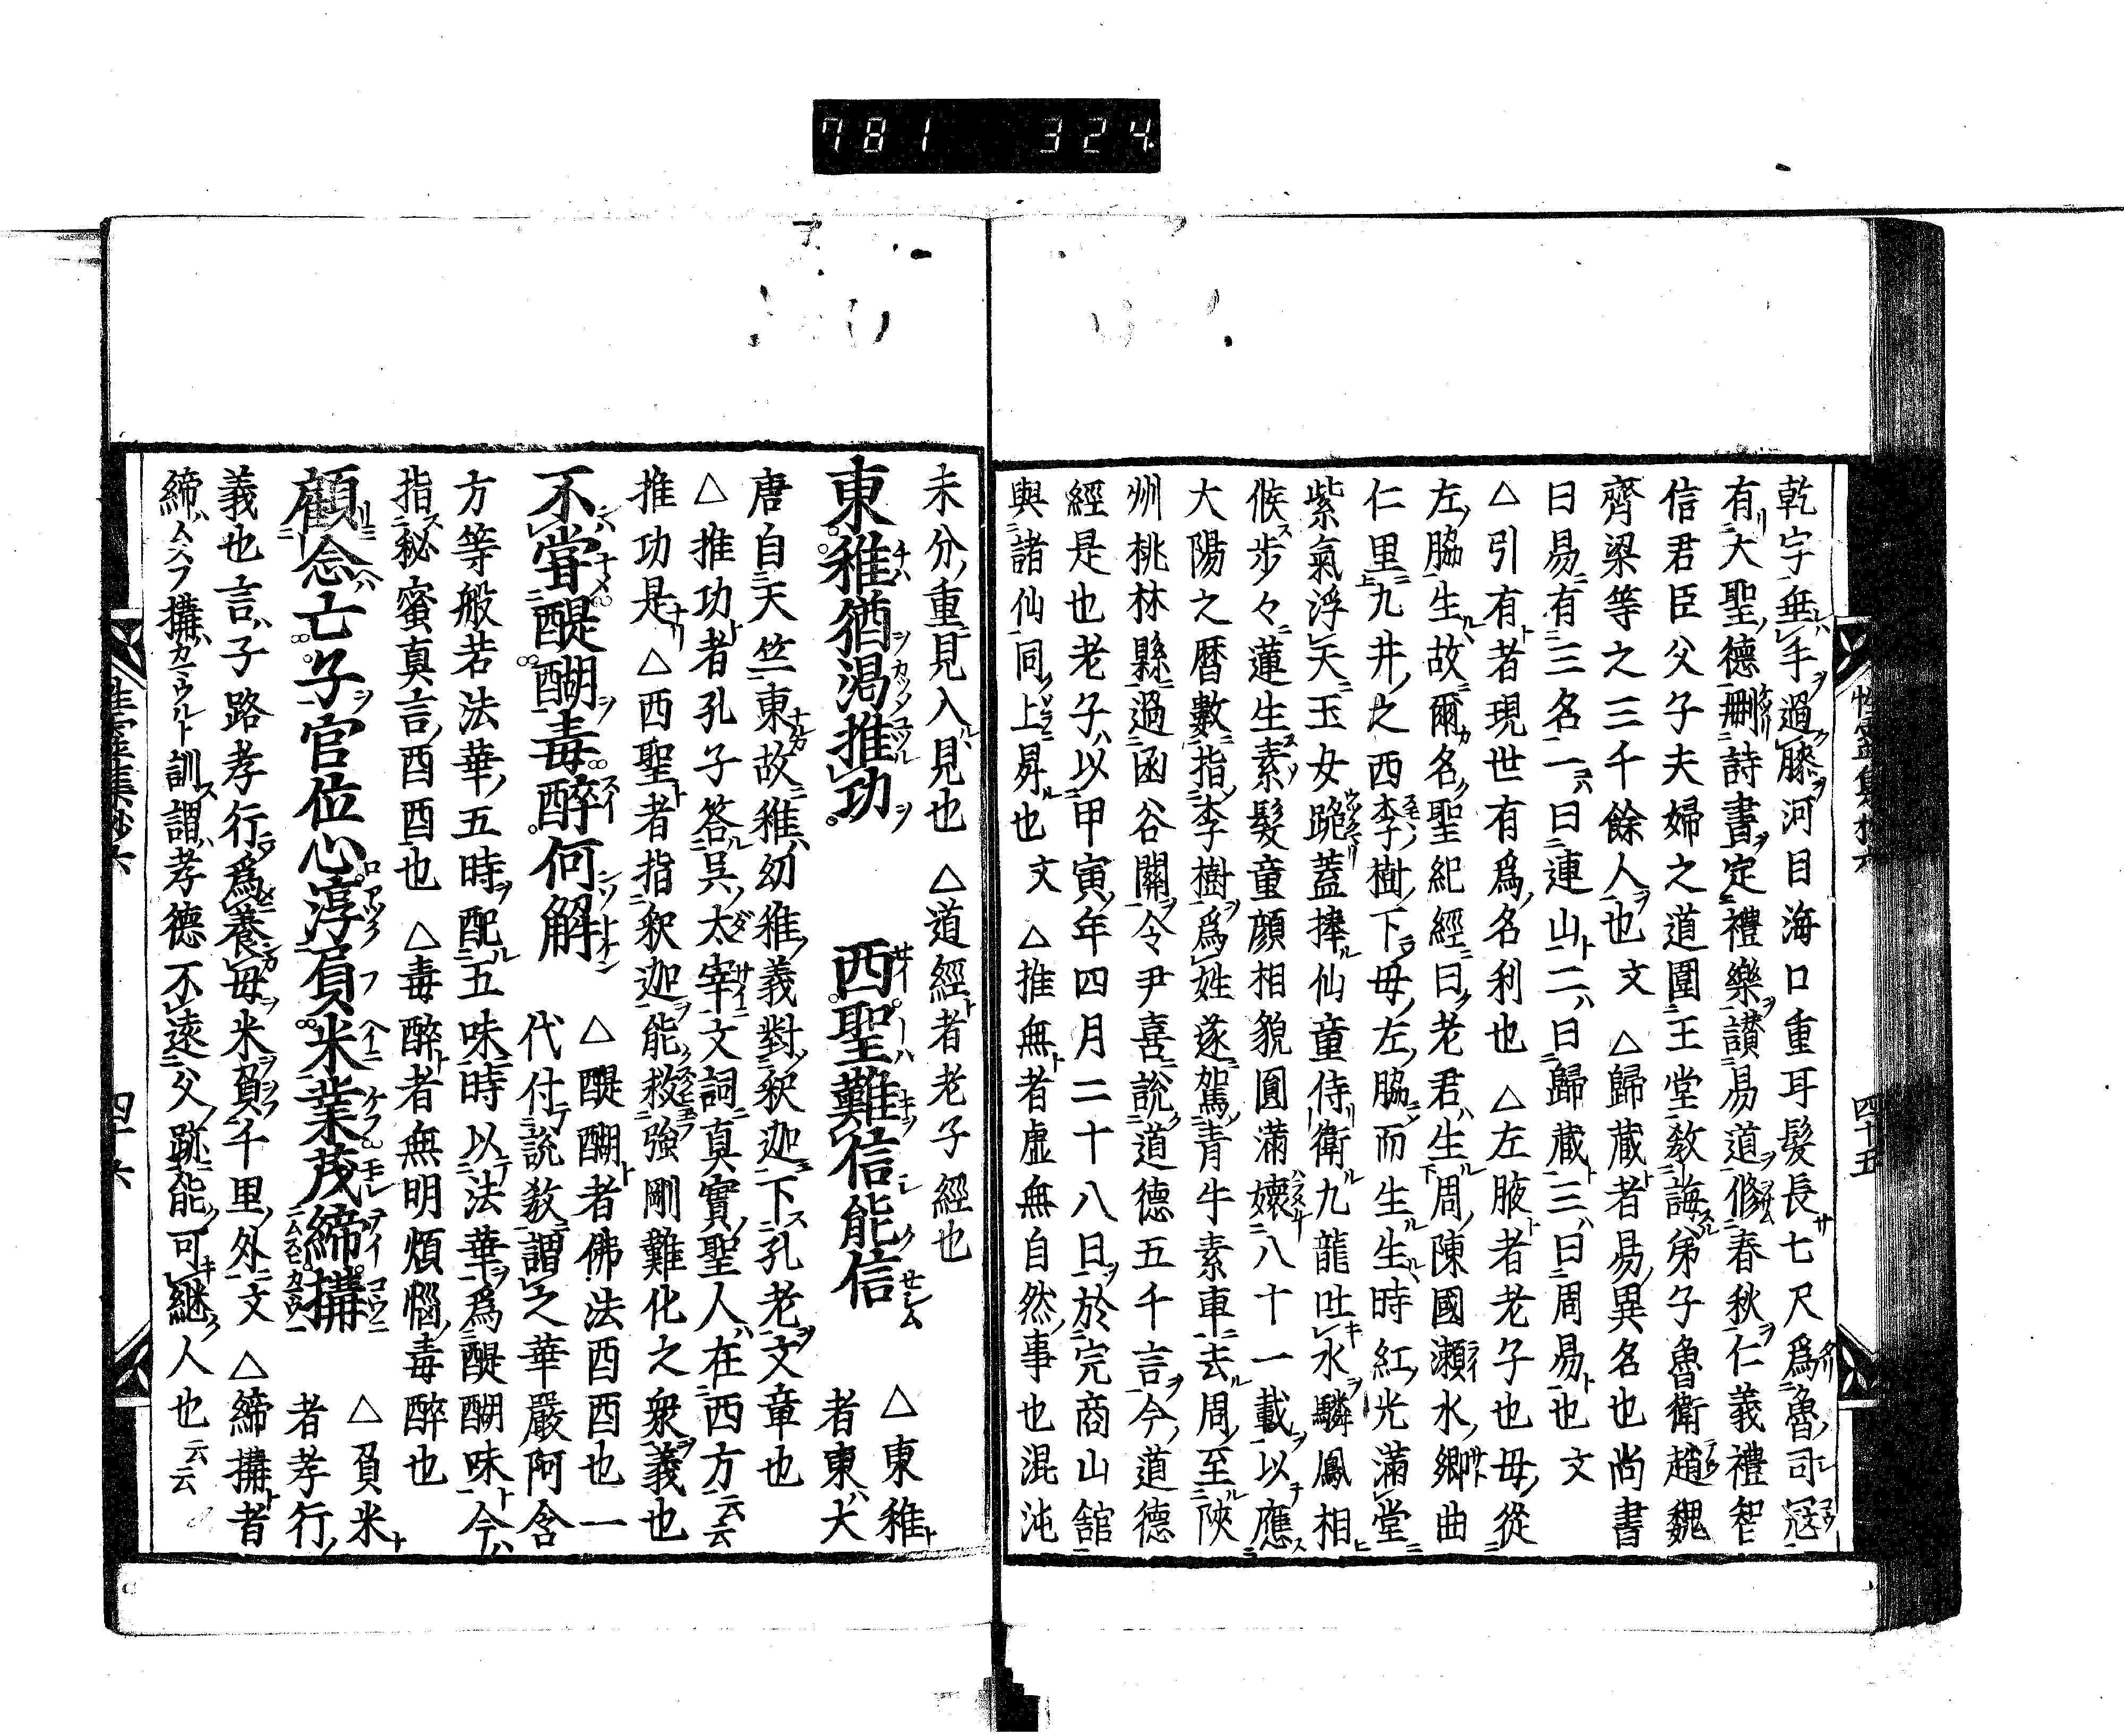 781 324
乾字垂手過膝河目海口重耳髮長七尺爲魯司寇
有大聖德刪詩書定禮樂讃易道修春秋仁義禮智
信君臣父子夫婦之道圍王堂教誨弟子魯衛趙魏
齊梁等之三千餘人也文 △歸蔵者易異名也尚書
曰易有三名一曰連山二曰歸蔵三曰周易也文
△引有者現世有爲名利也 △左腋者老子也母從
左脇生故爾名聖紀經曰老君生周陳國瀬水鄉曲
仁里九井之西李樹下母左脇而生生時紅光滿堂
紫氣浮天玉女跪蓋捧仙童侍衛九龍吐水驎鳳相
候步々蓮生素髮童顔相貌圓滿嬢八十一載以應
大陽之暦數指李樹爲姓遂駕青牛素車去周至陝
州桃林縣過函谷關令尹喜說道德五千言今道德
經是也老子以甲寅年四月二十八日於完商山舘
與諸仙同上昇也文 △推無者虚無自然事也混沌
性霊集抄六 四十五
未分重見入見也 △道經者老子經也
東稚猶渇推功 西聖難信能信 △東稚者東大
唐自天竺東故稚幼稚義對釈迦下孔老文章也
△推功者孔子答呉太宰文詞真實聖人在西方云云
推功是 △西聖者指釈迦能救強剛難化之衆義也
不甞醍醐毒醉何解 △醍醐者佛法酉酉也一
代付說教謂之華嚴阿含
方等般若法華五時配五味時以法華爲醍醐味今
指秘蜜真言酉酉也 △毒醉者無明煩惱毒醉也
顧念亡子官位心淳負米業茂締搆 △負米
者孝行
義也言子路孝行爲養母米負千里外文 △締搆者
締ムスフ搆カマウルト訓謂孝德不遠父跡能可継人也云云
性霊集抄六 四十六